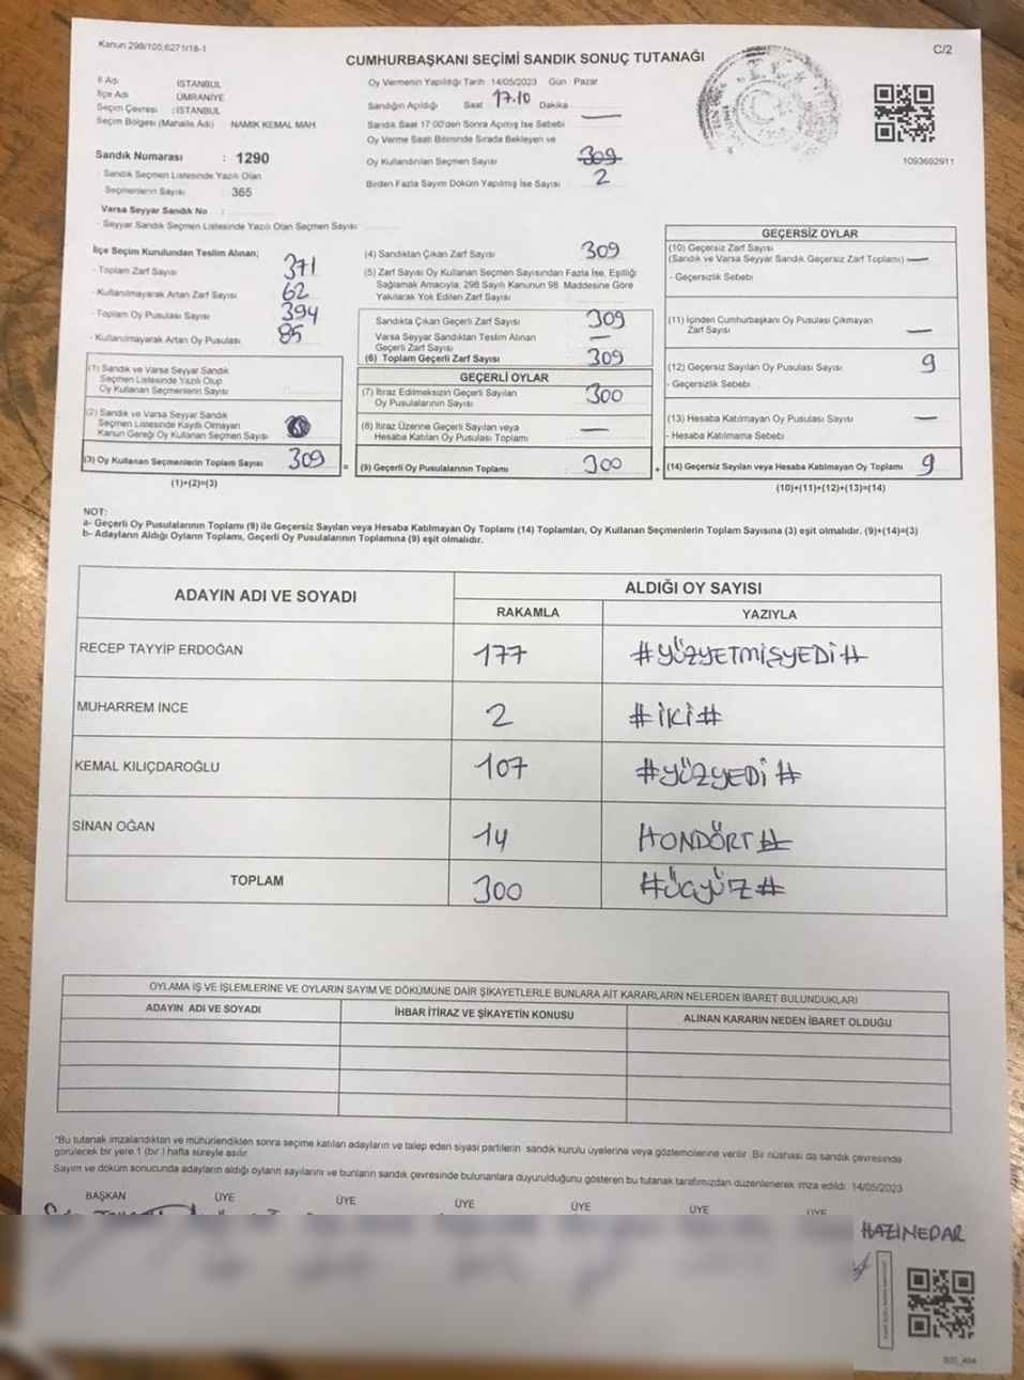 Kanun 298/105;6271/18-1
C/2
CUMHURBAŞKANI SEÇİMİ SANDIK SONUÇ TUTANAĞI
İl Adı İSTANBUL
İlçe Adı ÜMRANİYE
Seçim Çevresi : İSTANBUL
Seçim Bölgesi (Mahalle Adı) NAMIK KEMAL MAH
Sandık Numarası : 1290
- Sandık Seçmen Listesinde Yazılı Olan
Seçmenlerin Sayısı 365
Varsa Seyyar Sandık No :
- Seyyar Sandık Seçmen Listesinde Yazılı Olan Seçmen Sayısı
Oy Vermenin Yapıldığı Tarih :14/05/2023 Gün : Pazar
Sandığın Açıldığı Saat 17.10 Dakika
Sandık Saat 17:00'den Sonra Açılmış İse Sebebi —
Oy Verme Saati Bitiminde Sırada Bekleyen ve
Oy Kullandırılan Seçmen Sayısı 309
Birden Fazla Sayım Döküm Yapılmış İse Sayısı 2
1093692911
İlçe Seçim Kurulundan Teslim Alınan;
- Toplam Zarf Sayısı 371
- Kullanılmayarak Artan Zarf Sayısı 62
- Toplam Oy Pusulası Sayısı 394
- Kullanılmayarak Artan Oy Pusulası 85
(1) Sandık ve Varsa Seyyar Sandık
Seçmen Listesinde Yazılı Olup
Oy Kullanan Seçmenlerin Sayısı
(2) Sandık ve Varsa Seyyar Sandık
Seçmen Listesinde Kayıtlı Olmayan
Kanun Gereği Oy Kullanan Seçmen Sayısı
(3) Oy Kullanan Seçmenlerin Toplam Sayısı 309
(1)+(2)=(3)
(4) Sandıktan Çıkan Zarf Sayısı 309
(5) Zarf Sayısı Oy Kullanan Seçmen Sayısından Fazla İse, Eşitliği
Sağlamak Amacıyla, 298 Sayılı Kanunun 98. Maddesine Göre
Yakılarak Yok Edilen Zarf Sayısı
Sandıkta Çıkan Geçerli Zarf Sayısı 309
Varsa Seyyar Sandıktan Teslim Alınan
Geçerli Zarf Sayısı —
(6) Toplam Geçerli Zarf Sayısı 309
GEÇERLİ OYLAR
(7) İtiraz Edilmeksizin Geçerli Sayılan
Oy Pusulalarının Sayısı 300
(8) İtiraz Üzerine Geçerli Sayılan veya
Hesaba Katılan Oy Pusulası Toplamı —
= (9) Geçerli Oy Pusulalarının Toplamı 300
GEÇERSİZ OYLAR
(10) Geçersiz Zarf Sayısı
(Sandık ve Varsa Seyyar Sandık Geçersiz Zarf Toplamı) —
- Geçersizlik Sebebi
(11) İçinden Cumhurbaşkanı Oy Pusulası Çıkmayan
Zarf Sayısı —
(12) Geçersiz Sayılan Oy Pusulası Sayısı 9
- Geçersizlik Sebebi
(13) Hesaba Katılmayan Oy Pusulası Sayısı —
- Hesaba Katılmama Sebebi
+ (14) Geçersiz Sayılan veya Hesaba Katılmayan Oy Toplamı 9
(10)+(11)+(12)+(13)=(14)
NOT:
a- Geçerli Oy Pusulalarının Toplamı (9) ile Geçersiz Sayılan veya Hesaba Katılmayan Oy Toplamı (14) Toplamları, Oy Kullanan Seçmenlerin Toplam Sayısına (3) eşit olmalıdır. (9)+(14)=(3)
b- Adayların Aldığı Oyların Toplamı, Geçerli Oy Pusulalarının Toplamına (9) eşit olmalıdır.
ADAYIN ADI VE SOYADI ALDIĞI OY SAYISI
RAKAMLA YAZIYLA
RECEP TAYYİP ERDOĞAN 177 #YÜZYETMİŞYEDİ#
MUHARREM İNCE 2 #İKİ#
KEMAL KILIÇDAROĞLU 107 #YÜZYEDİ#
SİNAN OĞAN 14 #ONDÖRT#
TOPLAM 300 #ÜÇYÜZ#
OYLAMA İŞ VE İŞLEMLERİNE VE OYLARIN SAYIM VE DÖKÜMÜNE DAİR ŞİKAYETLERLE BUNLARA AİT KARARLARIN NELERDEN İBARET BULUNDUKLARI
ADAYIN ADI VE SOYADI İHBAR İTİRAZ VE ŞİKAYETİN KONUSU ALINAN KARARIN NEDEN İBARET OLDUĞU
"Bu tutanak imzalandıktan ve mühürlendikten sonra seçime katılan adayların ve talep eden siyasi partilerin sandık kurulu üyelerine veya gözlemcilerine verilir. Bir nüshası da sandık çevresinde
görülecek bir yere 1 (bir ) hafta süreyle asılır.
Sayım ve döküm sonucunda adayların aldığı oyların sayılarını ve bunların sandık çevresinde bulunanlara duyurulduğunu gösteren bu tutanak tarafımızdan düzenlenerek imza edildi. 14/05/2023
BAŞKAN ÜYE ÜYE ÜYE ÜYE ÜYE ÜYE
HAZİNEDAR